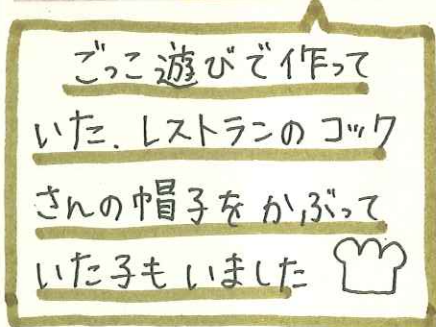 ごっこ遊びで作って
いた、レストランのコック
さんの帽子をかぶって
いた子もいました